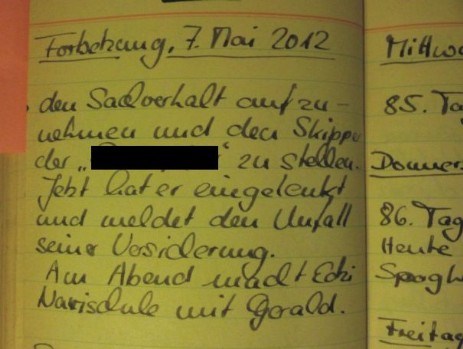 Fortsetzung, 7. Mai 2012
den Sachverhalt aufzu-
nehmen und den Skipper
der „ “ zu stellen.
Jetzt hat er eingelenkt
und meldet den Unfall
seiner Versicherung.
Am Abend macht Ecki
Navischule mit Gerald.
Mittwo
85. Ta
Donner
86. Tag
Heute
Spagh
Freitag